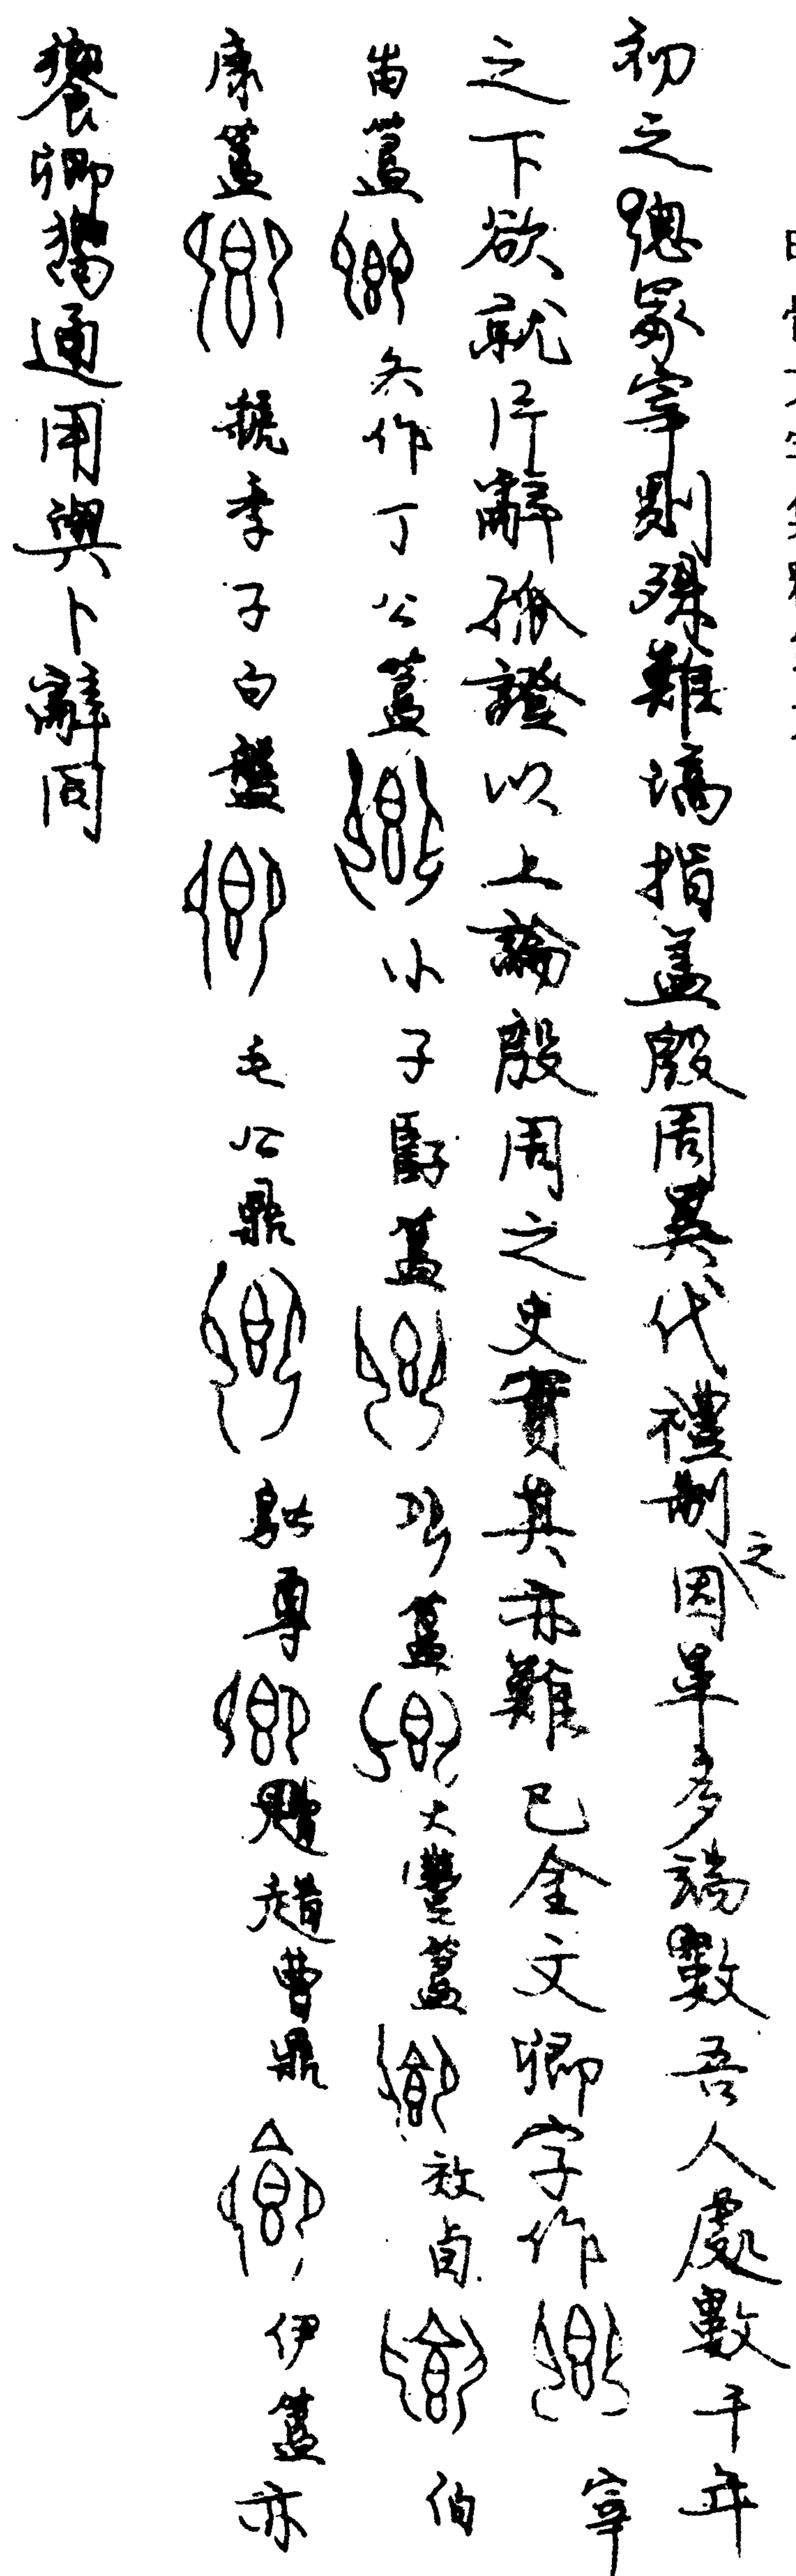 初之總冢宰則殊難塙指蓋殷周異代禮制之因革多端數吾人處數千年
之下欲就片辭孤證以上論殷周之史實其亦難已金文卿字作宰
甾簋矢作丁公簋小子簋簋大豐簋效卣伯
康簋虢季子白盤毛公鼎尊趞曹鼎伊簋亦
饗卿鄉通用與卜辭同